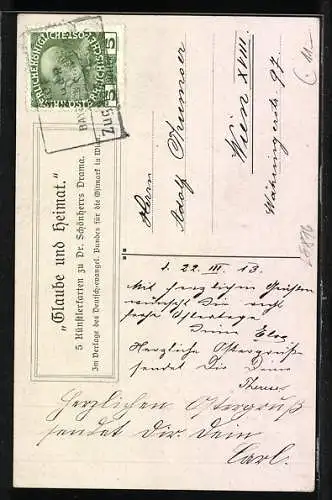 KAISERLICHE KÖNIGLICHE ÖSTERREICHISCHE POST
5 5
Zug
"Glaube und Heimat."
5 Künstlerkarten zu Dr. Schönherrs Drama.
Im Verlage des Deutsch-evangel. Bundes für die Ostmark in Wien.
Herrn
Adolf
Wien XVIII.
Währingerstr. 97
22. III. 13.
Mit herzlichen Grüßen
wünscht Dir recht
frohe Ostertage
Deine
Herzliche Ostergrüße
sendet Dir Deine
Therese
Herzlichen Ostergruß
sendet Dir Dein
Carl.